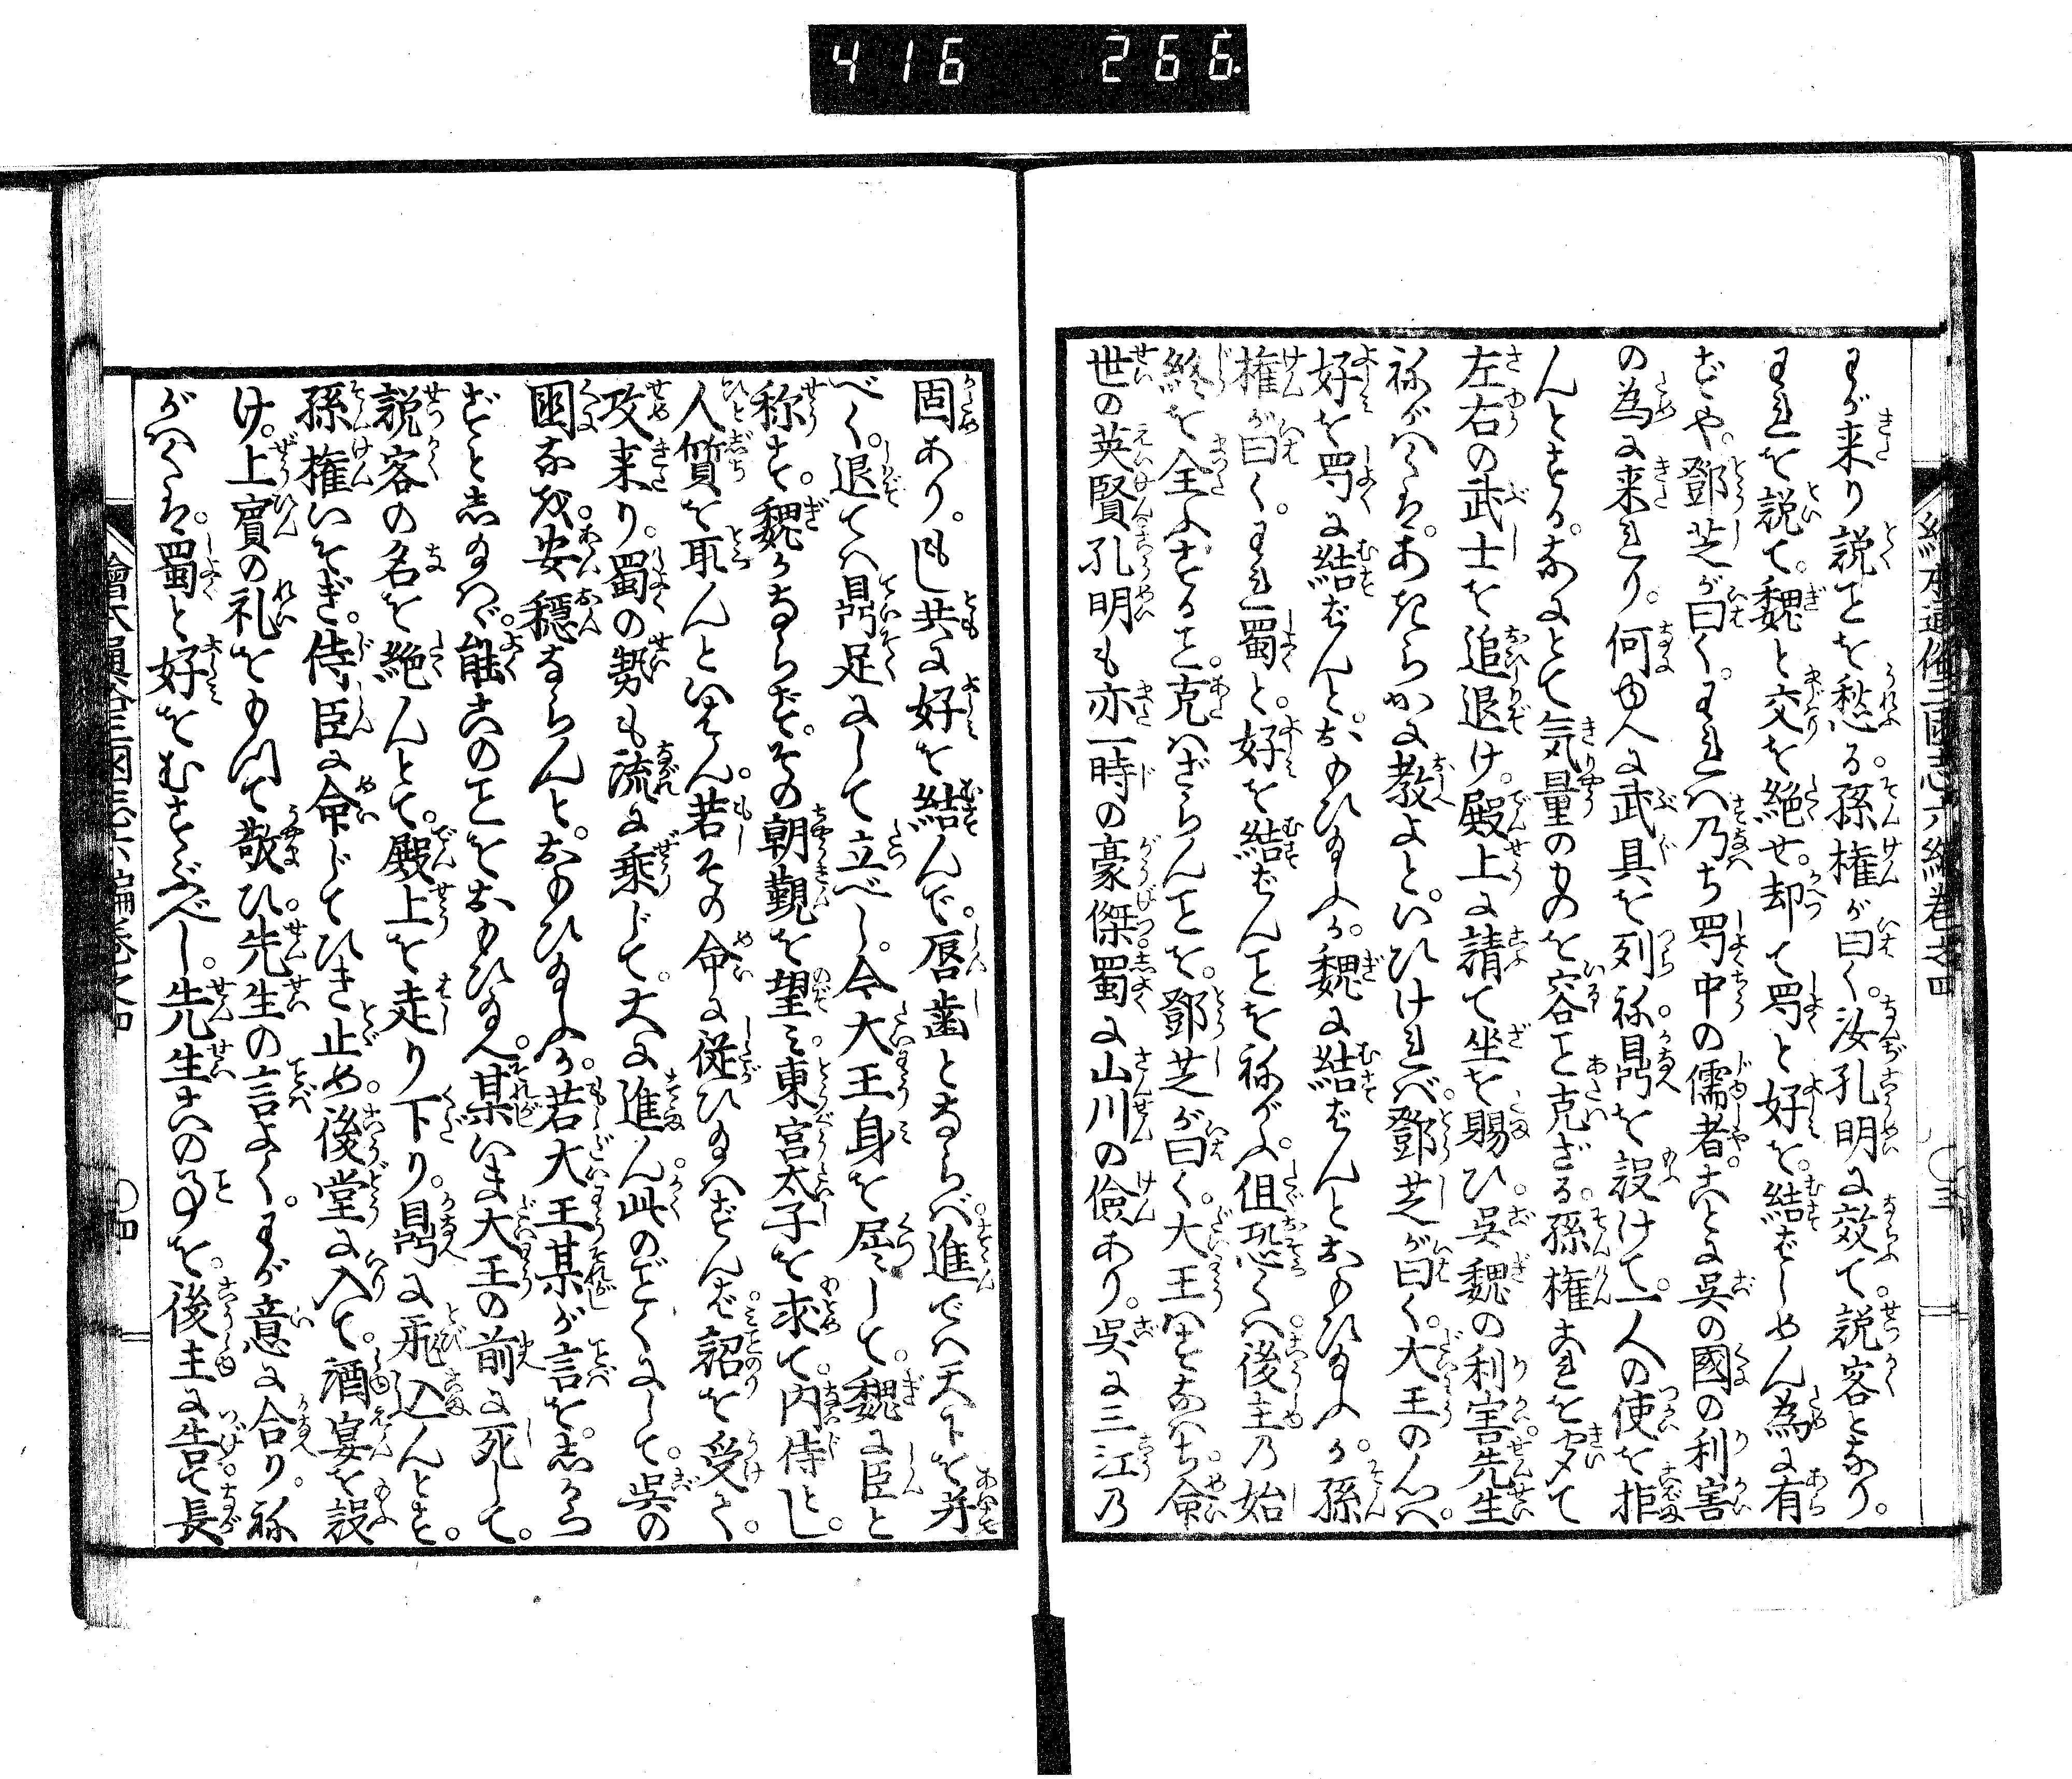 416 266.
わが来り説ことを愁る。孫権が曰く。汝孔明に效て。説客となり。
われを説て。魏と交を絶せ。却て蜀と好を。結ばしめん為に有
ずや。鄧芝が曰く。われハ乃ち蜀中の儒者。ことに呉の國の利害
の為に来れり。何ゆへに武具を列ね。鼎を設けて。一人の使を拒
んとする。なにとて気量のものを容こと克ざる。孫権これを聞て
左右の武士を追退け。殿上に請て坐を賜ひ。呉魏の利害先生
ねがハくは。あきらかに教よと。いひけれバ。鄧芝が曰く。大王のんハ。
好を蜀に結ばんと。おもひ給ふか。魏に結ばんとおもひ給ふか。孫
権が曰く。われ蜀と。好を結ばんことをねがふ。但恐くハ後主乃始
終を全ふすること。克ハざらんことを。鄧芝が曰く。大王ハすなハち命
世の英賢孔明も亦一時の豪傑蜀に山川の儉あり。呉に三江乃
繪本通俗三國志六編巻之四
固あり。もし共に好を結んで。唇歯とならバ進でハ天下を并
べく。退てハ鼎足にして立べし。今大王身を屈して。魏に臣と
称せ。魏かならず。その朝覲を望ミ東宮太子を求て。内侍とし。
人質を取んといはん。若その命に従ひ給ハずんバ。詔を受て。
攻来り。蜀の勢も流に乗じて。大に進ん。此のごとくにして。呉の
国なを。安穏ならんと。おもひ給ふか。若大王某が言を。志から
ずと志給ハゞ。能このことをおもひ給へ。某いま大王の前に死して。
説客の名を絶んとて。殿上を走り下り。鼎に飛込んとす。
孫権いそぎ。侍臣に命じてひき止め。後堂に入て。酒宴を設
け。上賓の礼をもつて敬ひ。先生の言よく。わが意に合り。ね
がハくは。蜀と好をむすぶべし。先生この事を。後主に告て長
繪本通俗三國志六編巻之四 〇四